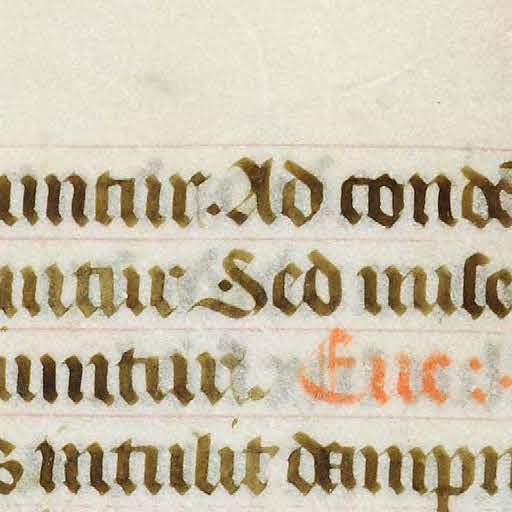 untur. Ad conde
untur Sed mise
untur. Euc:
s intulit dampn